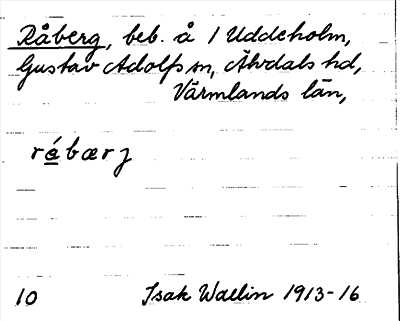 Råberg, beb. å 1 Uddeholm,
Gustav Adolfs sn, Älvdals hd,
Värmlands län,
rǻbærj
10 Isak Wallin 1913-16